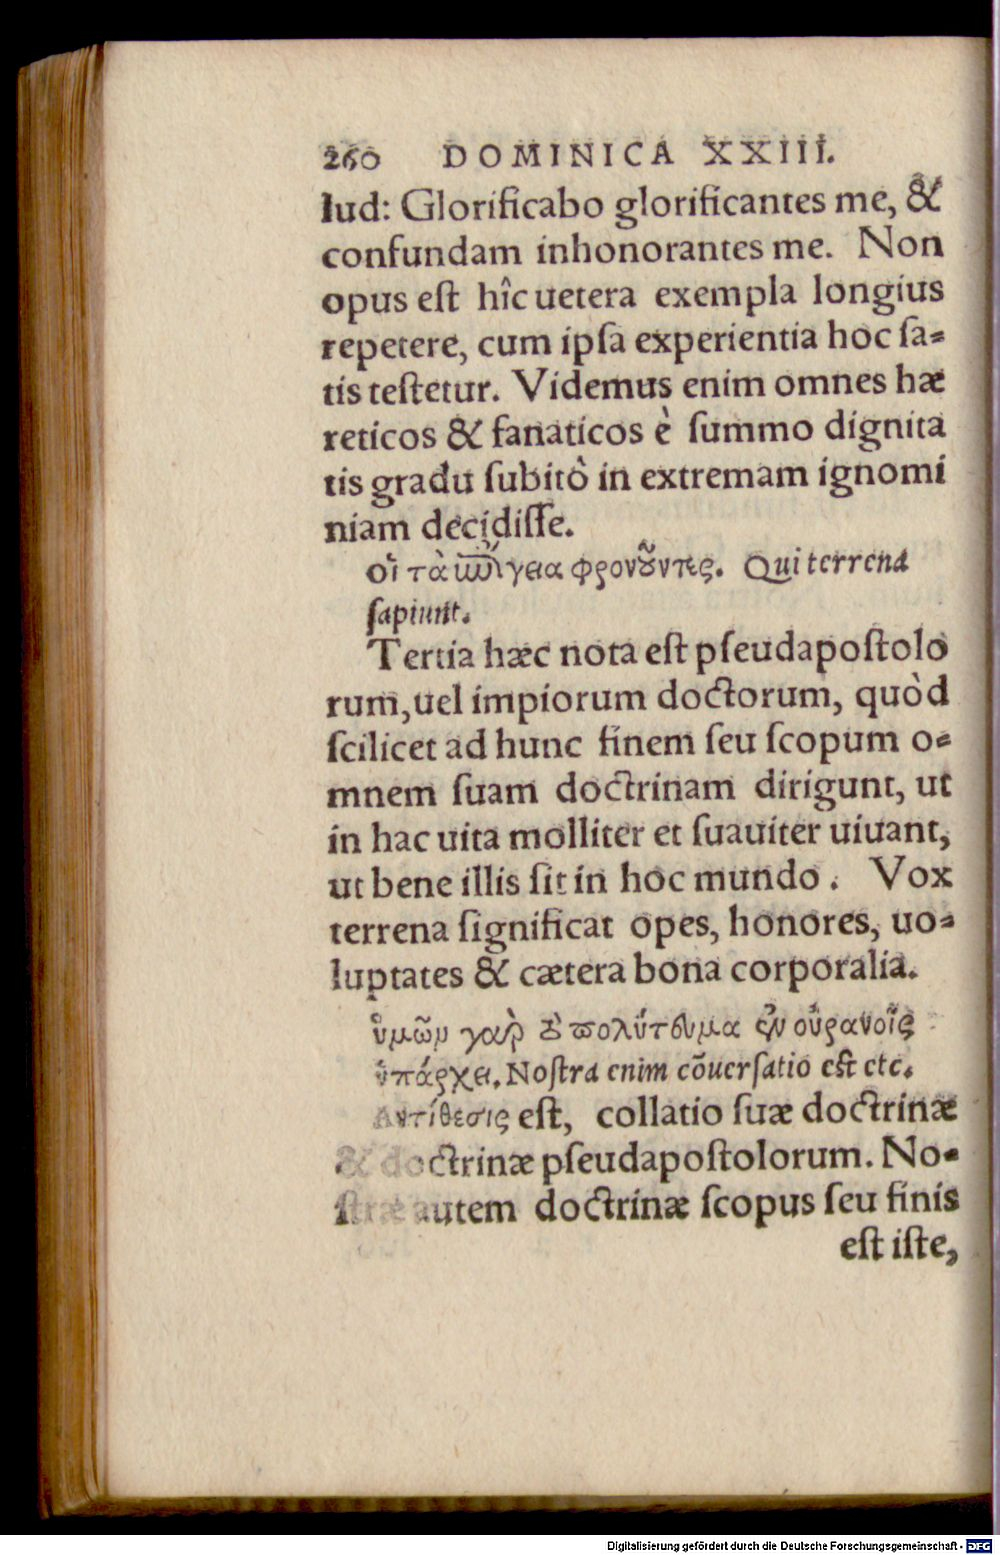 260 DOMINICA XXIII.
lud: Glorificabo glorificantes me, &
confundam inhonorantes me. Non
opus eſt hîc uetera exempla longius
repetere, cum ipſa experientia hoc ſa-
tis teſtetur. Videmus enim omnes hæ
reticos & fanaticos è ſummo dignita
tis gradu ſubitò in extremam ignomi
niam decidiſſe.
οἱ τὰ ἐπίγεια φρονοῦντες. Qui terrena
ſapiunt.
Tertia hæc nota eſt pſeudapoſtolo
rum, uel impiorum doctorum, quòd
ſcilicet ad hunc finem ſeu ſcopum o-
mnem ſuam doctrinam dirigunt, ut
in hac uita molliter et ſuauiter uiuant,
ut bene illis ſit in hoc mundo. Vox
terrena ſignificat opes, honores, uo-
luptates & cætera bona corporalia.
ὑμῶν γὰρ τὸ πολίτευμα ἐν οὐρανοῖς
ὑπάρχει. Noſtra enim cōuerſatio eſt etc.
Αντίθεσις eſt, collatio ſuæ doctrinæ
& doctrinæ pſeudapoſtolorum. No-
ſtræ autem doctrinæ ſcopus ſeu finis
eſt iſte,
Digitalisierung gefördert durch die Deutsche Forschungsgemeinschaft - DFG